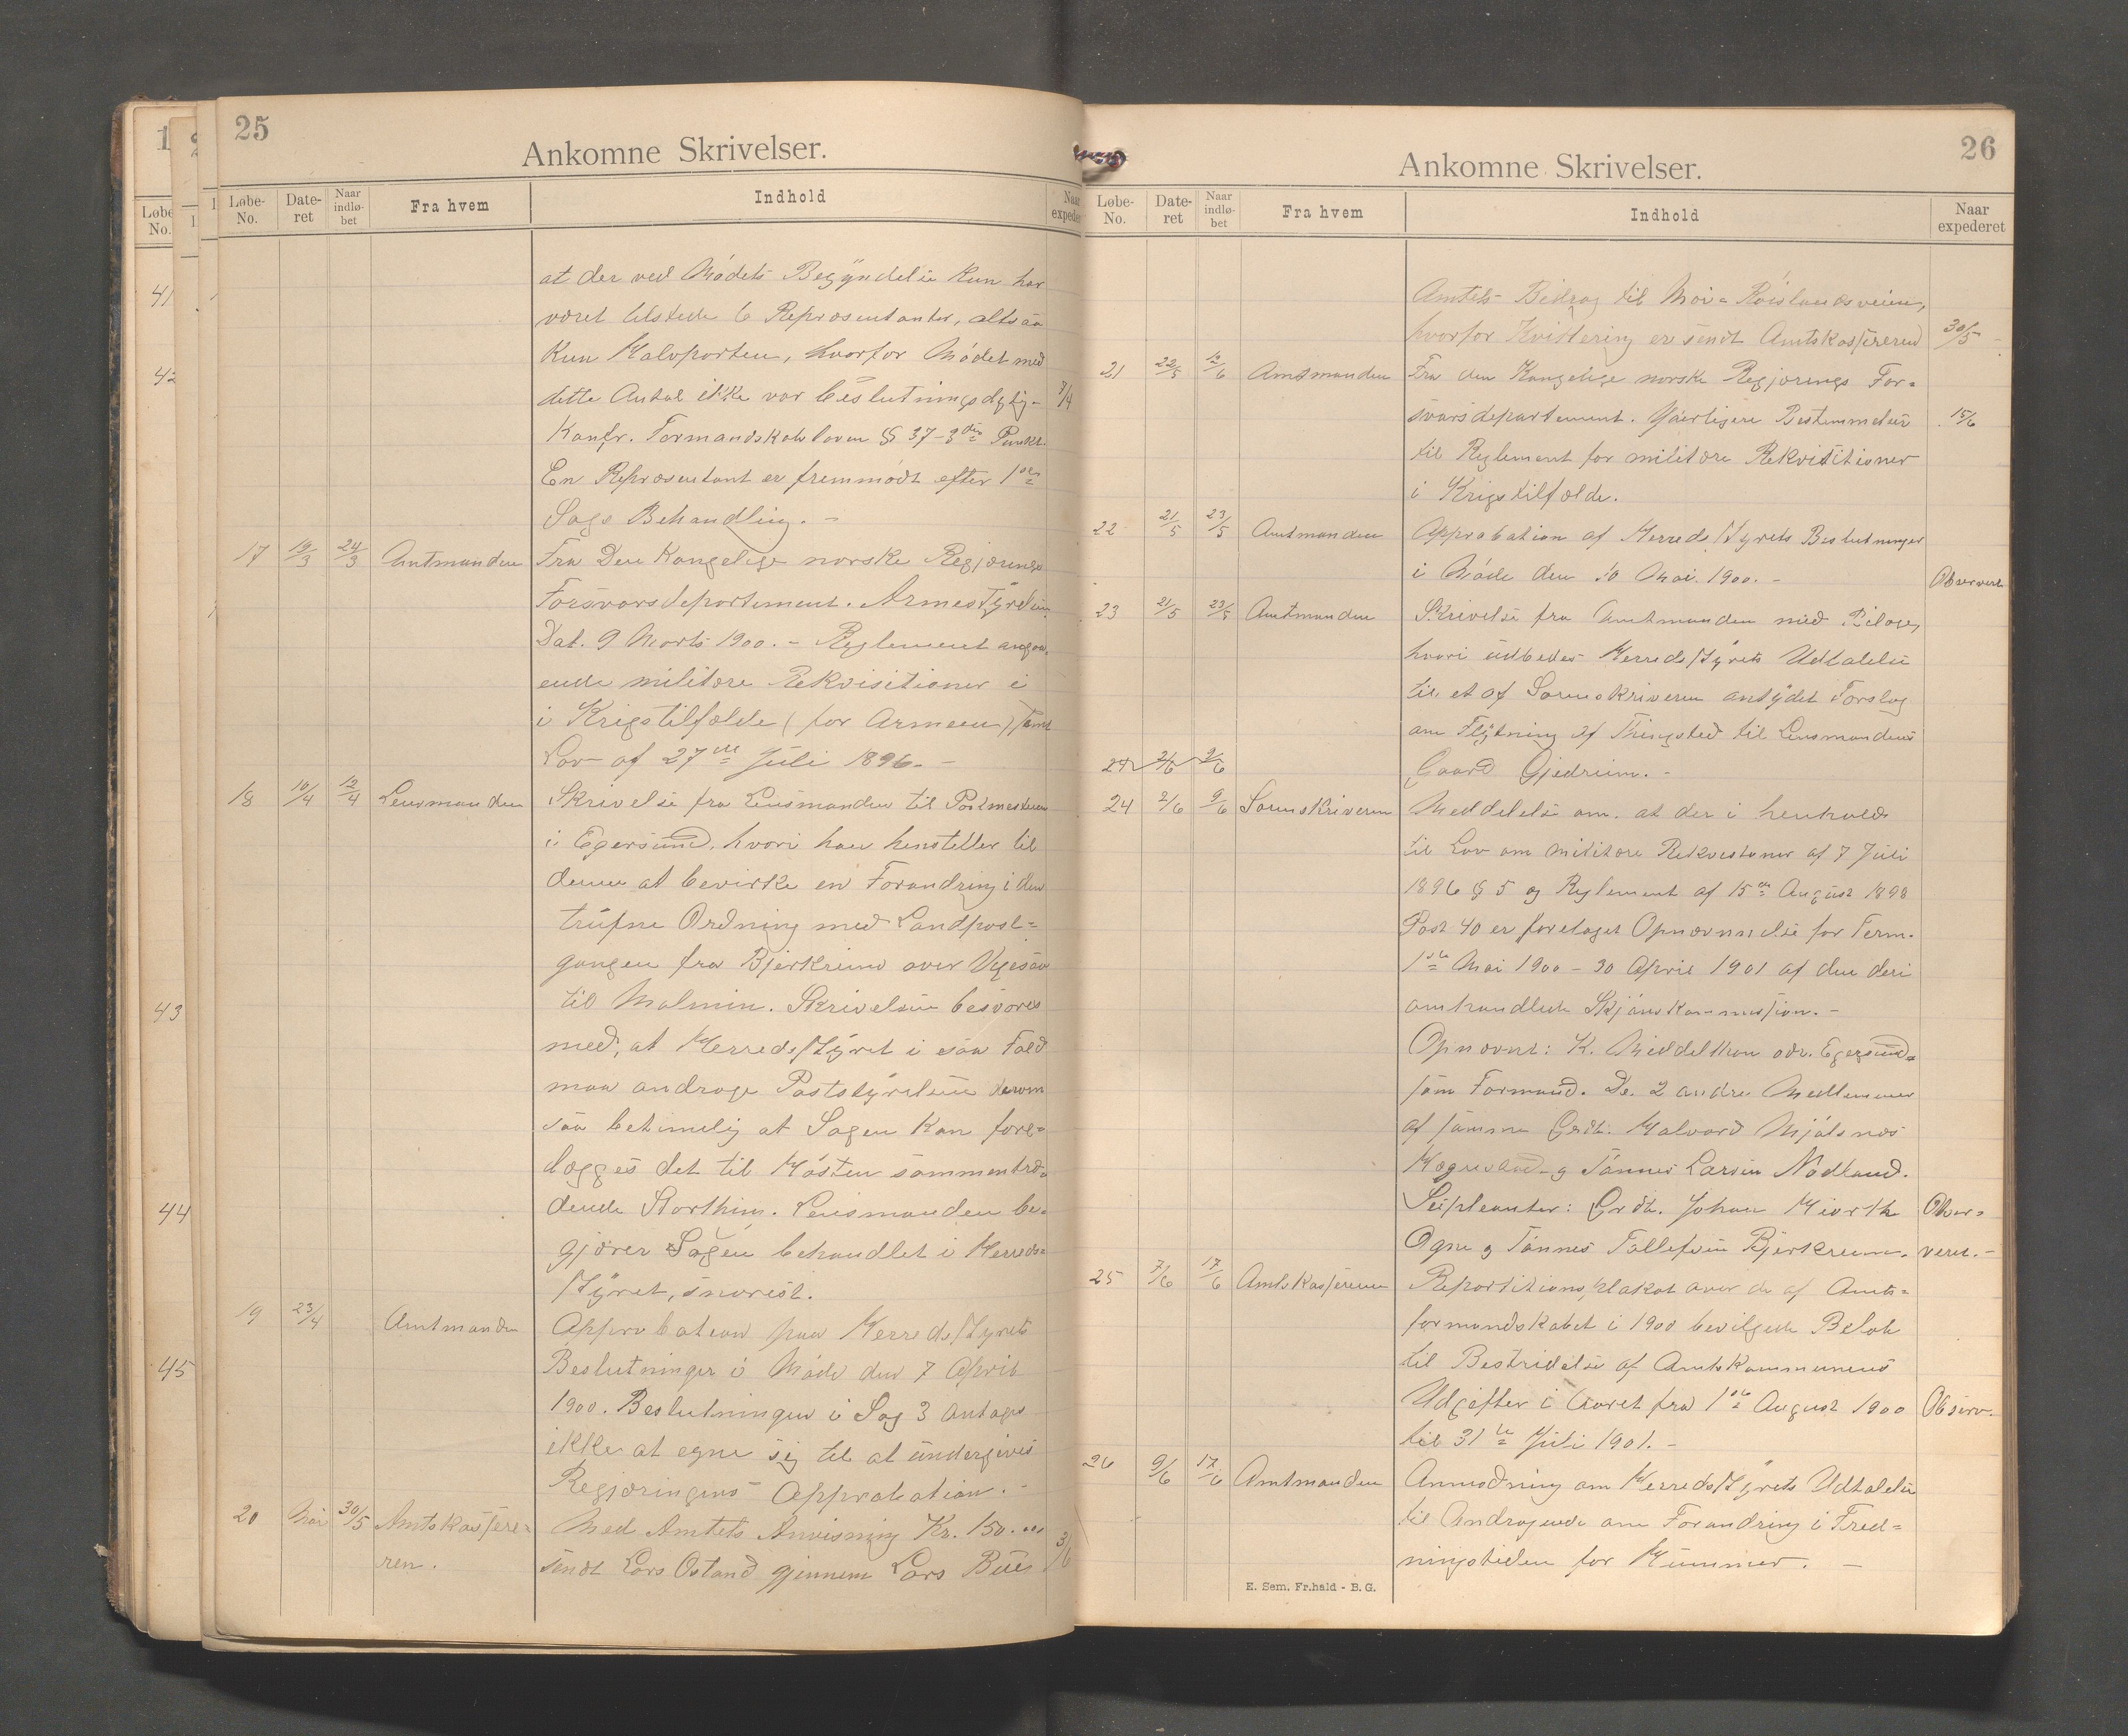 25
Ankomne Skrivelser.
Løbe-No. Date-ret Naar indlø-bet Fra hvem Indhold Naar expederet
at der ved Mødets Begyndelse kun har
været tilstede 6 Repræsentanter, altsaa
kun Halvparten, hvorfor Mødet med
dette Antal ikke var beslutningsdygtig- 7/4
Konfr. Formandskabsloven § 37-3die Punkt
En Repræsentant er fremmødt efter 1ste
Sags Behandling. -
17 19/3 24/3 Amtmanden Fra Den Kongelige norske Regjerings
Forsvarsdepartement. Armestyrelsen
Dat. 9 Marts 1900. - Reglement angaa-
ende militære Rekvisitioner i
i Krigstilfælde (for Armeen) samt
Lov af 27de Juli 1896. -
18 10/4 12/4 Lensmanden Skrivelse fra Lensmanden til Postmesteren
i Egersund, hvori han henstiller til
denne at bevirke en Forandring i den
trufne Ordning med Landpost-
gangen fra Bjerkreim over Vegesaa
til Malmin. Skrivelsen besvares
med, at Herredsstyret i saa Fald
maa androge Poststyrelsen derom
saa betimelig at Sagen kan fore-
lægges det til Høsten sammentræ-
dende Storthing. Lensmanden be-
gjærer Sagen behandlet i Herreds-
styret, snarest.
19 23/4 Amtmanden Approbation paa Herredsstyrets
Beslutninger i Møde den 7 April
1900. Beslutningen i Sag 3 antages
ikke at egne sig til at undergives
Regjeringens Approbation. -
20 Mai 30/5 Amtskassere- Med Amtets Anvisning Kr. 150.00
ren. sendt Lars Ostand gjennem Lars Bue 3/6
26
Ankomne Skrivelser.
Løbe-No. Date-ret Naar indlø-bet Fra hvem Indhold Naar expederet
Amtets Bidrag til Moi-Røislandsveien,
hvorfor Kvittering er sendt Amtskassereren 30/5
21 22/5 12/6 Amtmanden Fra den Kongelige norske Regjerings For-
svarsdepartement. Yderligere Bestemmelser 15/6
til Reglement for militære Rekvisitioner
i Krigstilfælde.
22 21/5 23/5 Amtmanden Approbation af Herredsstyrets Beslutninger
i Møde den 10 Mai 1900. - Observert
23 21/5 23/5 Amtmanden Skrivelse fra Amtmanden med Bilage,
hvori udbedes Herredsstyrets Udtalelse
til et af Sorenskriveren antydet Forslag
om Flytning af Thingsted til Lensmandens
24 2/6 9/6 Gaard Gjedrem. -
24 2/6 9/6 Sorenskriveren Meddelelse om. at der i henhold
til Lov om militære Rekvisitioner af 7 Juli
1896 § 5 og Reglement af 15de August 1898
Post 40 er foretaget Opnævnelse for Term.
1ste Mai 1900 - 30 April 1901 af den deri
omhandlede Skjønskommission. -
Opnævnt: K. Middelthon adr. Egersund-
som Formand. De 2 andre Medlemmer
af samme Grdb. Halvard Mjølsnes
og Tønnes Larsen Nodland.
Supleanter: Grdb. Johan Obser-
Ogne og Tønnes Tollefsen Bjerkreim. veret. -
25 7/6 17/6 Amtskassereren Repartitionsplakat over de af Amts-
formandskabet i 1900 bevilgede Beløb
til Bestridelse af Amtskommunens
Udgifter i Aaret fra 1ste August 1900 Observ.
til 31te Juli 1901. -
26 9/6 17/6 Amtmanden Anmodning om Herredsstyrets Udtalelse
til Andragende om Forandring i Fred-
ningstiden for Hummer. -
E. Sem, Fr.hald - B. G.
41
42
43
44
45